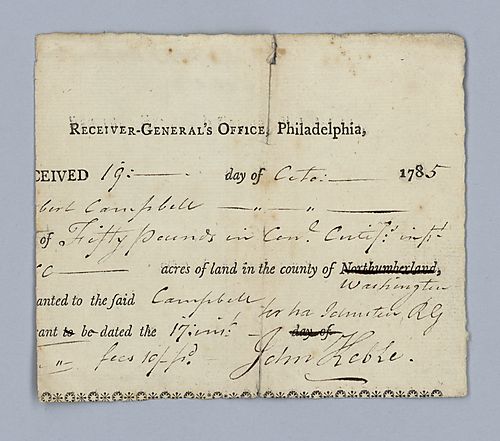 RECEIVER-GENERAL'S OFFICE, Philadelphia,
CEIVED 19: day of Octo: 1785
bert Campbell
of Fifty Pounds in Con.l Certif.s
acres of land in the county of Northumberland,
Washington
anted to the said Campbell for Fra Johnston, RG
ant to be dated the 17: inst day of
fees John Keble.